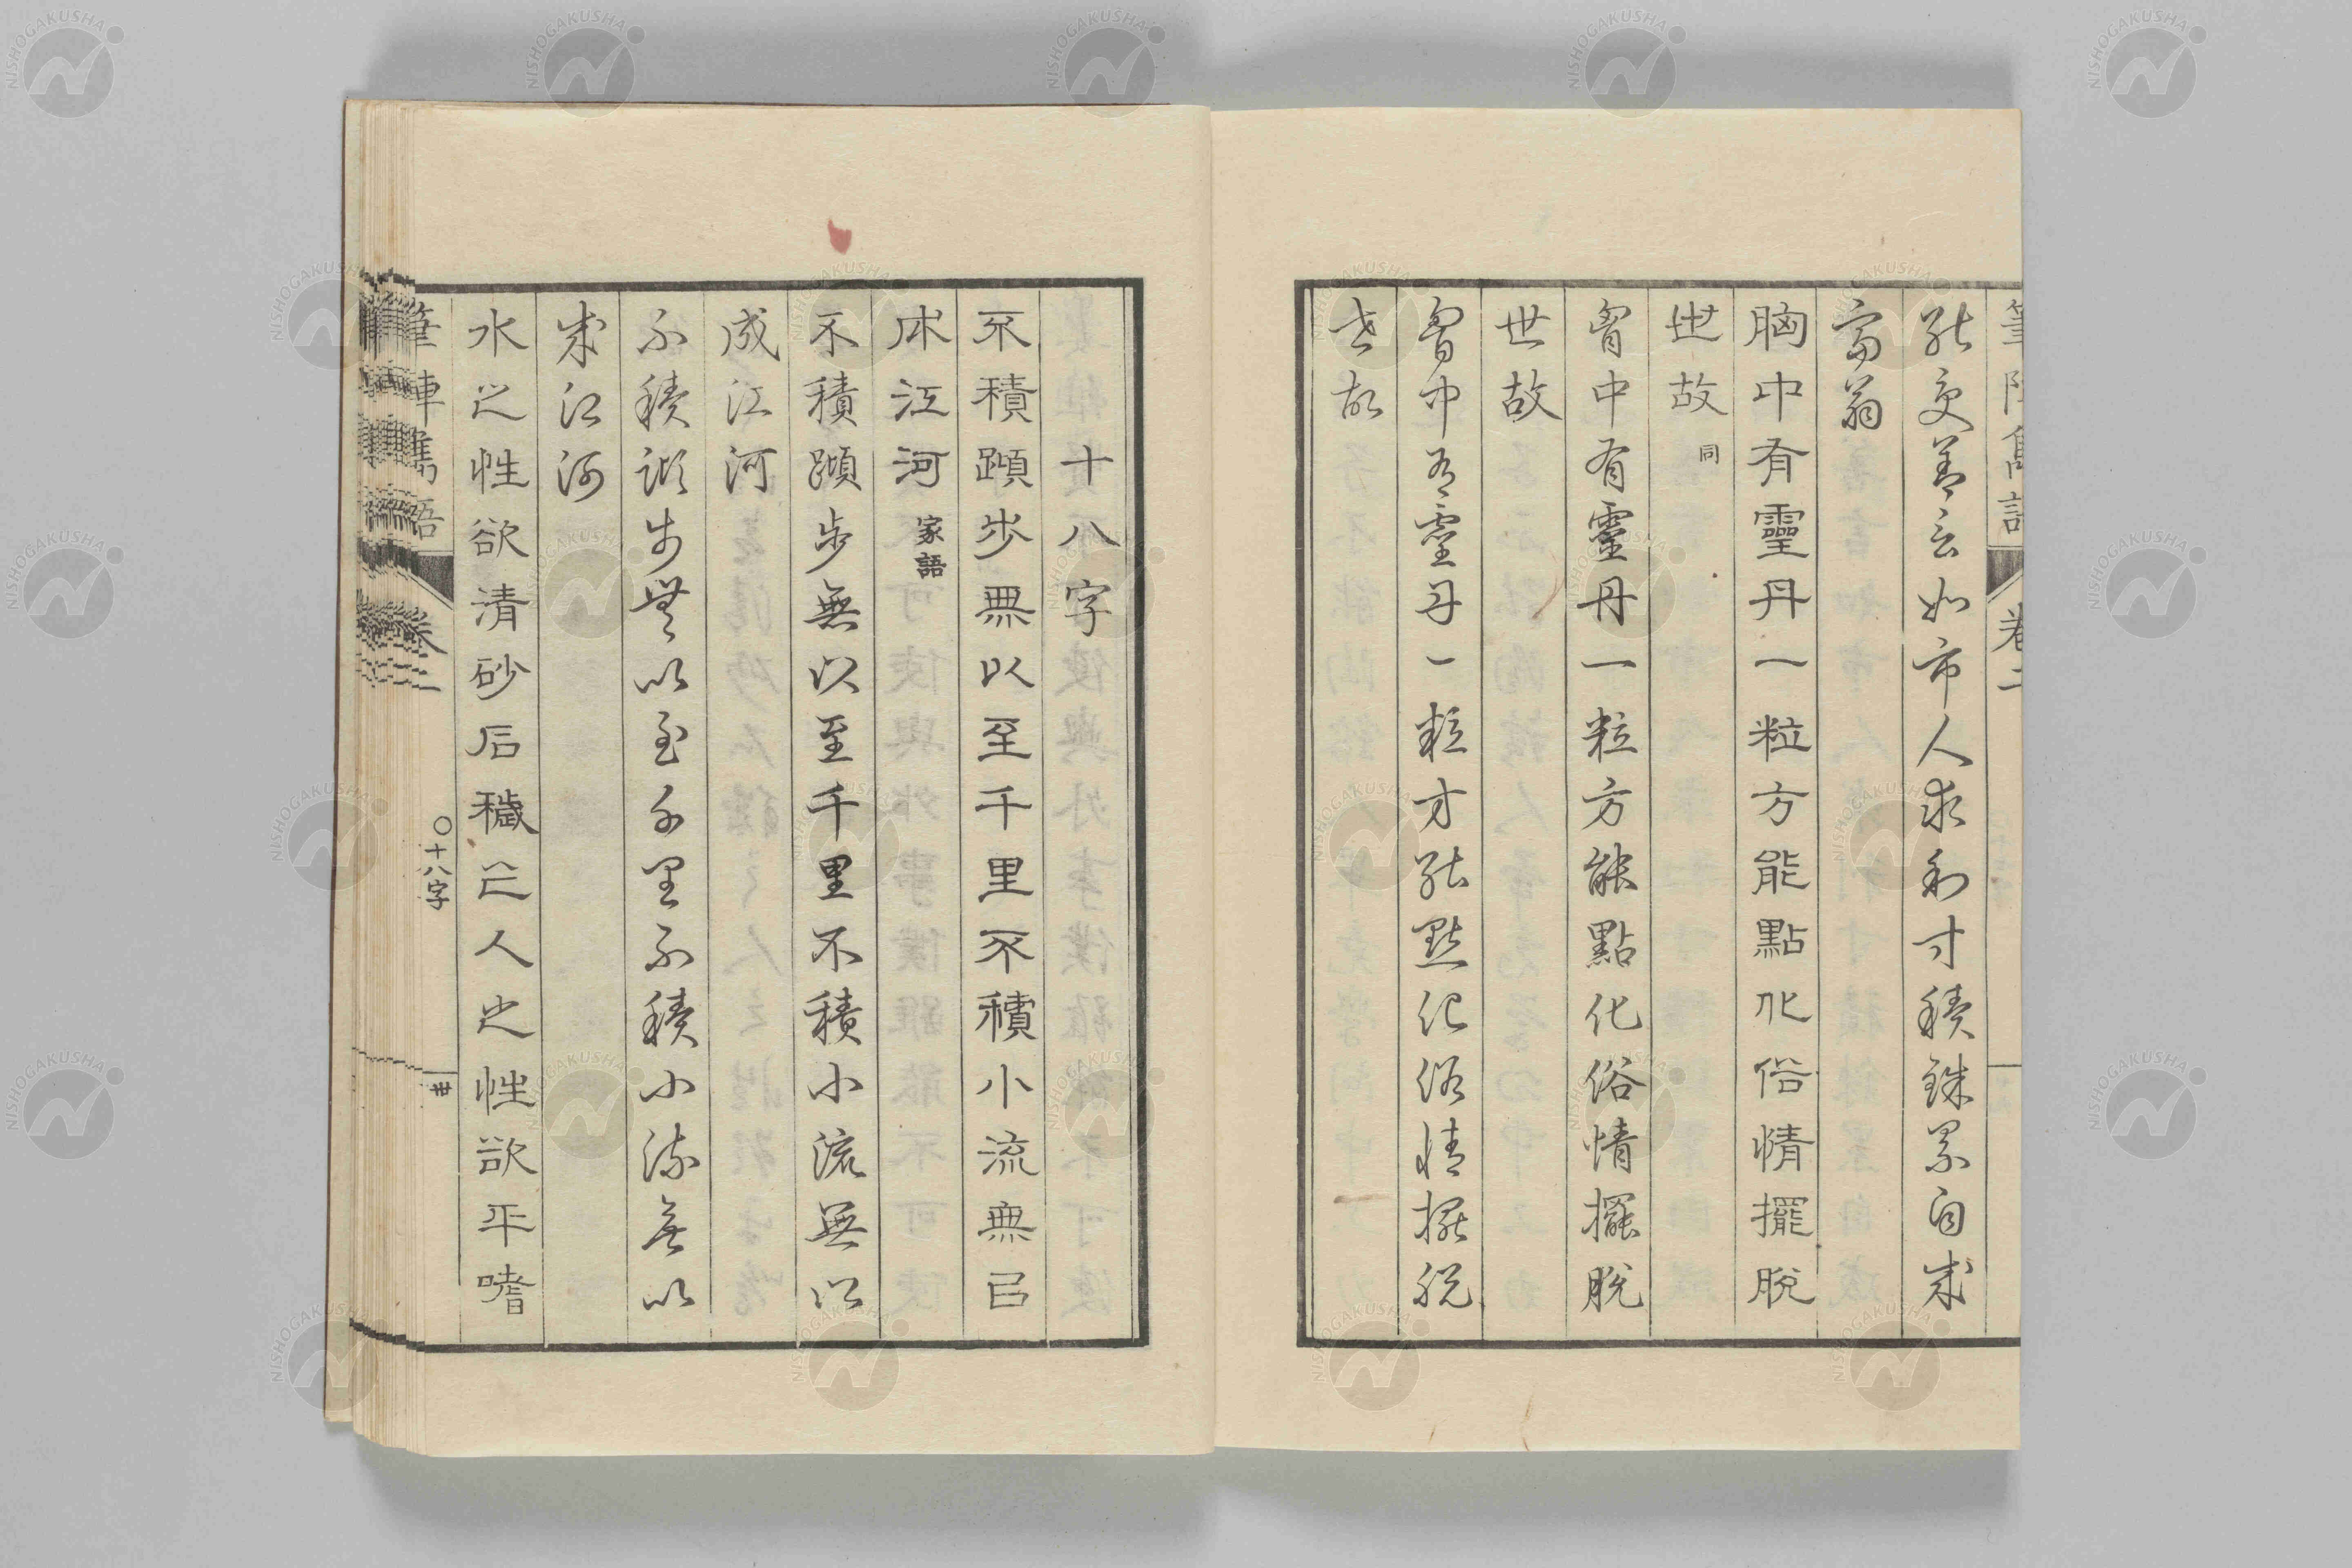 能交善言如市人求利寸積銖累自成
富翁
胸中有靈丹一粒方能點化俗情擺脫
世故 同
胷中有靈丹一粒方能點化俗情擺脫
世故
胷中有靈丹一粒方能點化俗情擺脫
世故
十八字
不積蹞步無以至千里不積小流無㠯
成江河 家語
不積蹞步無以至千里不積小流無以
成江河
不積跬步無以至千里不積小流無以
成江河
水之性欲清砂石穢之人之性欲平嗜
筆陣雋語 卷二 〇十八字 廿
NISHOGAKUSHA